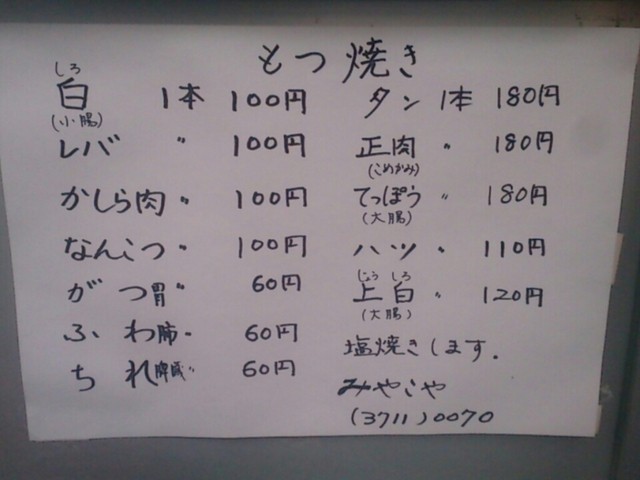 もつ焼き
しろ
白 1本 100円
(小腸)
レバ 〃 100円
かしら肉 〃 100円
なんこつ 〃 100円
がつ胃 〃 60円
ふわ肺 〃 60円
ちれ脾臓 〃 60円
タン 1本 180円
正肉 〃 180円
(こめかみ)
てっぽう 〃 180円
(大腸)
ハツ 〃 110円
じょう しろ
上白 〃 120円
(大腸)
塩焼きします.
みやこや
(3711)0070